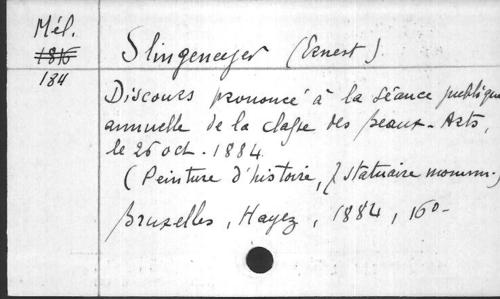 Mél.
1816
184
Slingeneyer (Ernest).
Discours prononcé à la séance publique
annuelle de la classe des beaux-Arts,
le 26 oct. 1884.
(Peinture d'histoire, statuaire monum.)
Bruxelles, Hayez, 1884, 16o-